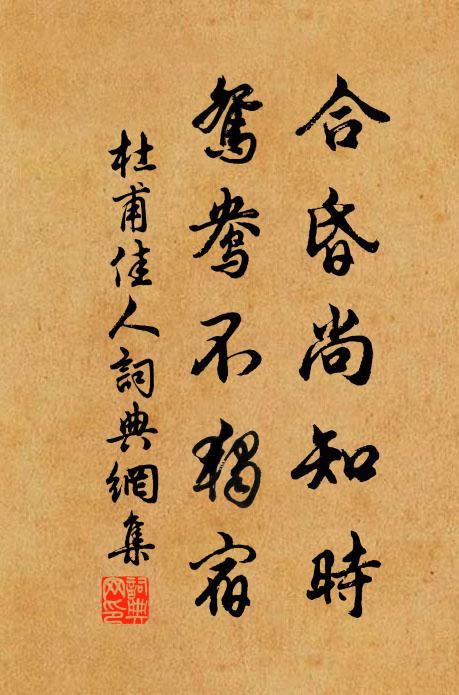 合昏尚知時
鴛鴦不獨宿
杜甫佳人詞典網集
詞典網印